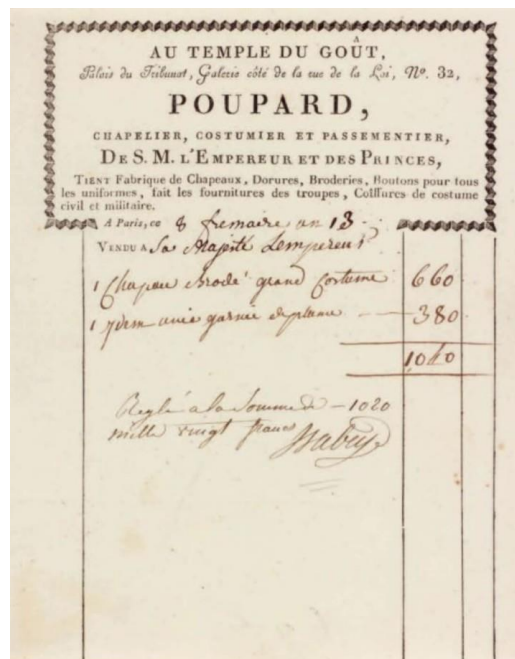 AU TEMPLE DU GOÛT,
Palais du Tribunat, Galerie côté de la rue de la Loi, Nº. 32,
POUPARD,
CHAPELIER, COSTUMIER ET PASSEMENTIER,
DE S. M. L'EMPEREUR ET DES PRINCES,
TIENT Fabrique de Chapeaux, Dorures, Broderies, Boutons pour tous
les uniformes, fait les fournitures des troupes, Coiffures de costume
civil et militaire.
A Paris, ce 8 frimaire an 13
VENDU A Sa Majesté Lempereur
1 Chapeau Brodé grand Costume 660
1 Idem unie garnie de plume 380
1040
Reglé a la Somme de 1020
mille vingt francs